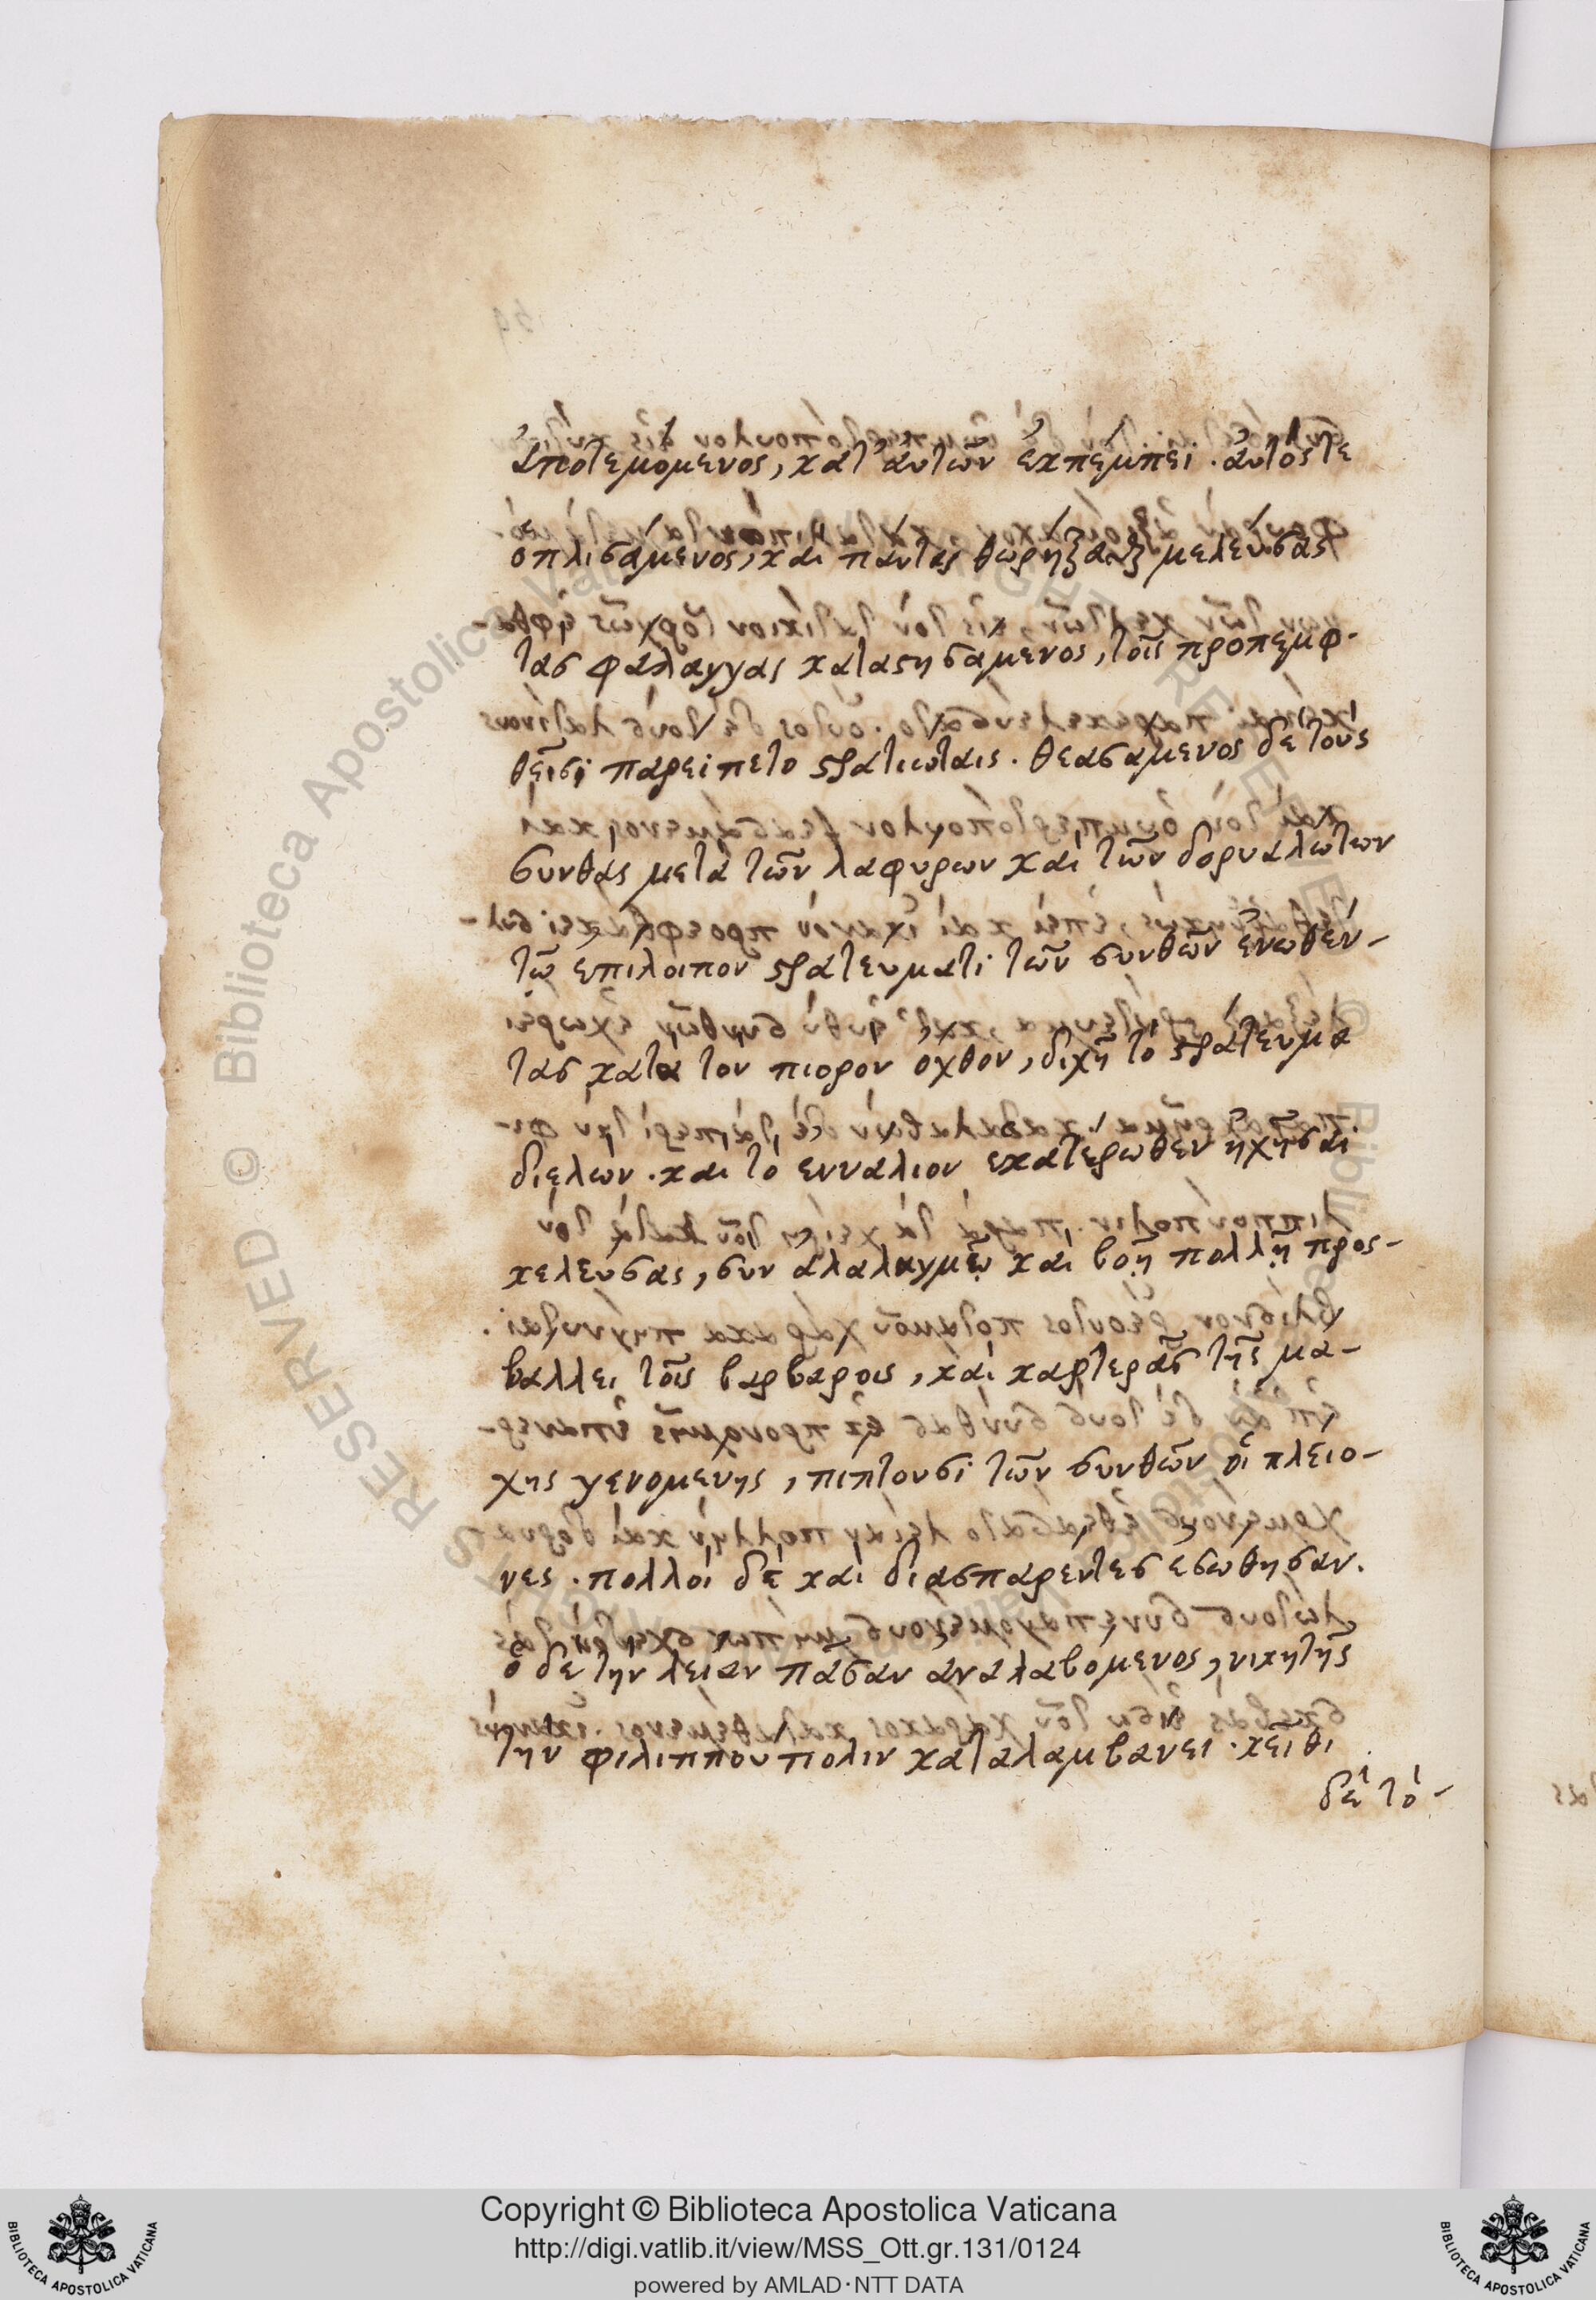 ἀποτεμόμενος, κατ' ἀυτῶν ἐκπέμπει . ἀυτός τε
ὁπλισάμενος, καὶ πάντας μελεύσας
τασ φάλαγγας καταστησάμενος, τοῖς προπεμφ-
θεῖσι παρείπετο στρατιώταις . θεασάμενος δὲ τοὺς
συνθας μετὰ τῶν λαφύρων καὶ τῶν δορυαλώτων
τῶ ἐπιλοίπον στρατεύματι τῶν συνθῶν ἑνωθέν-
τασ κατα τον πιορον όχθον, διχῆ τὸ στράτευμα
διελων . και τὸ εννάλιον ἑκατέρωθεν ηχῆσαι
κελεύσας, συν ἀλαλαγμῶ καὶ βοῆ πολλῆ προσ-
βάλλει τοῖς βαρβάροις, καὶ καρτερᾶσ τῆς μά-
χης γενομένης, πίπτουσι τῶν συνθῶν οἱ πλείο-
νες . πολλοὶ δὲ καὶ διασπαρέντες ἐσώθησαν .
ὁ δὲ τὴν λείαν πᾶσαν ἀναλαβόμενος, νικητῆς
τὴν φιλιππούπολιν καταλαμβάνει . κεῖθι
δὲ τὸ -
Copyright © Biblioteca Apostolica Vaticana
http://digi.vatlib.it/view/MSS_Ott.gr.131/0124
powered by AMLAD·NTT DATA
BIBLIOTECA APOSTOLICA VATICANA
BIBLIOTECA APOSTOLICA VATICANA